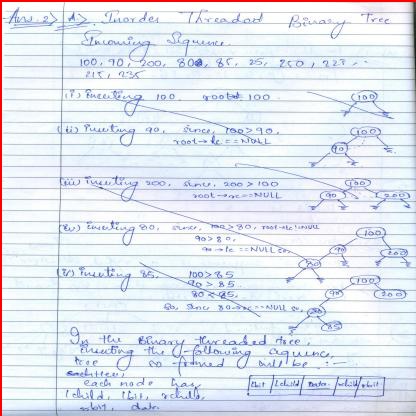 Ans.2) A) Inorder Threaded Binary Tree
Incoming Sequence
100, 90, 200, 80, 85, 25, 250, 225
215, 235
(i) inserting 100, root 100.
100
(ii) inserting 90, since, 100>90,
root→lc==NULL
100
90
(iii) inserting 200, since, 200>100
root→rc==NULL
100
90 200
(iv) inserting 80, since, 100>80, root→lc!NULL
90>80,
90→lc==NULL so,
100
90 200
80
(v) inserting 85, 100>85
90>85.
80<85,
So, since 80→rc==NULL so,
100
90 200
80
85
In the Binary threaded tree,
inserting the following sequence,
tree so formed will be :-
each node has
lchild, lbit, rchild,
rbit, data.
lbit lchild Data rchild rbit